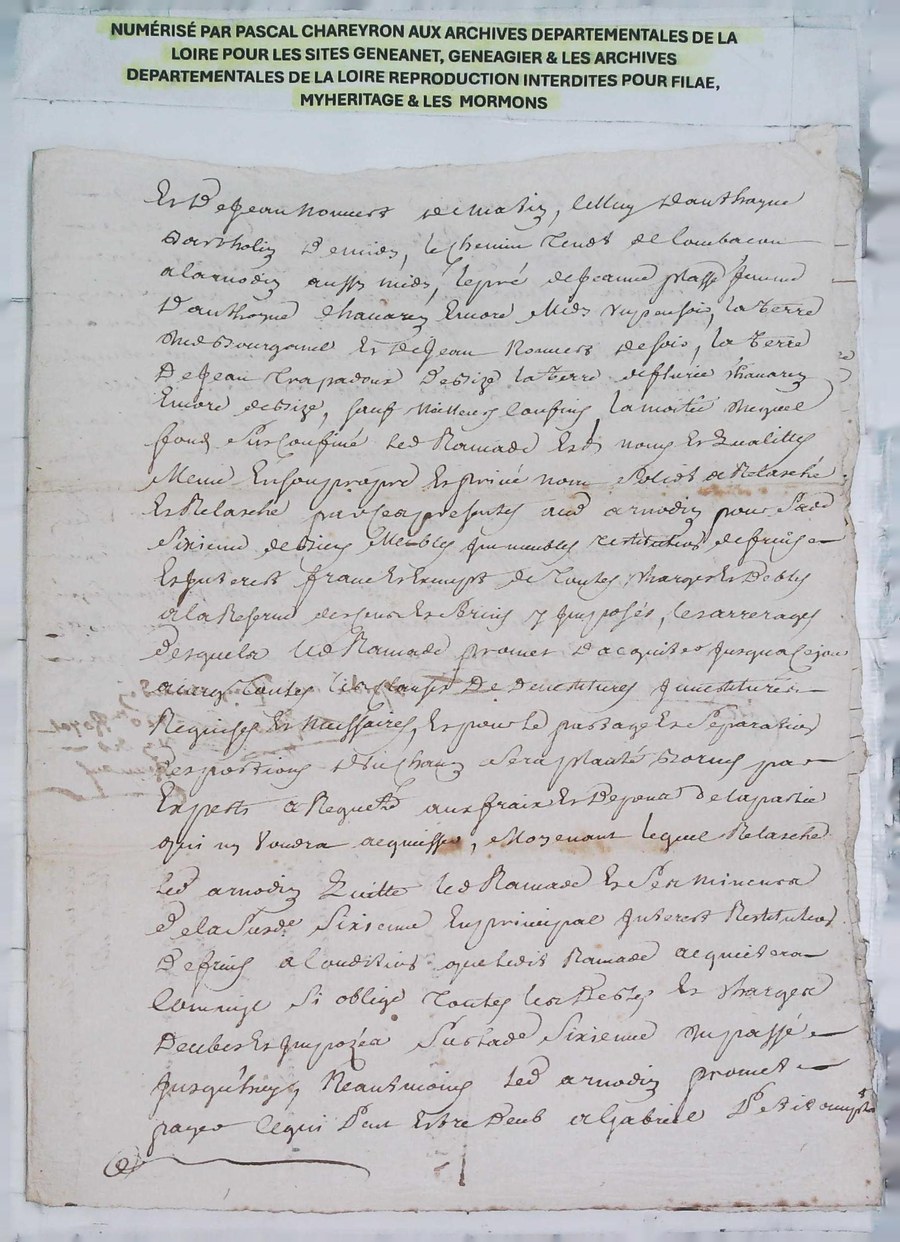 NUMÉRISÉ PAR PASCAL CHAREYRON AUX ARCHIVES DEPARTEMENTALES DE LA
LOIRE POUR LES SITES GENEANET, GENEAGIER & LES ARCHIVES
DEPARTEMENTALES DE LA LOIRE REPRODUCTION INTERDITES POUR FILAE,
MYHERITAGE & LES MORMONS
Et de Jean de matin, danthoyne
de midy, le chemin tendt de
aussy midy, le pré de Jeanne
danthoyne chauarey Encore midy un peu soir, la terre
Et de Jean de soir, la terre
de Jean trapadoux de bize la terre de fleurie chauarey
Encore de bize, sauf meilleurs confins la moitié duquel
fond sus confiné led Ramade Esd noms Et qualittes
Mesme En son propre Et privé nom de Relasché
Et Relasche par ces presentes aud arnodin pour
sixieme de biens Meubles Immeubles restitution de fruits
Et Interest franc Et Exempt de toutes charges Et debtes
a la Reserve des sens Et servis y Imposés, les arrerages
desquels led Ramade promet dacquiter Jusqua ce jour
avec toutes les clauses de devestitures Jnvestitures
Requises Et necessaires, Et pour le partage Et separation
des portions du champ sera planté bornes par
Experts a Requete aux fraix Et depens de la partie
qui ny voudra acquiesser, Moyenant lequel Relasché
Led arnodin quitte led Ramade Et ses mineurs
de la susde sixieme En principal Interest Restitution
de fruits a condition que ledit Ramade acquitera
comme il si oblige toutes les debtes Et charges
deubes Et Imposées sur lade sixieme du passé
Jusqu'heuy Neantmoins Led arnodin promet
payer ce qui peut Estre deub a Gabriel